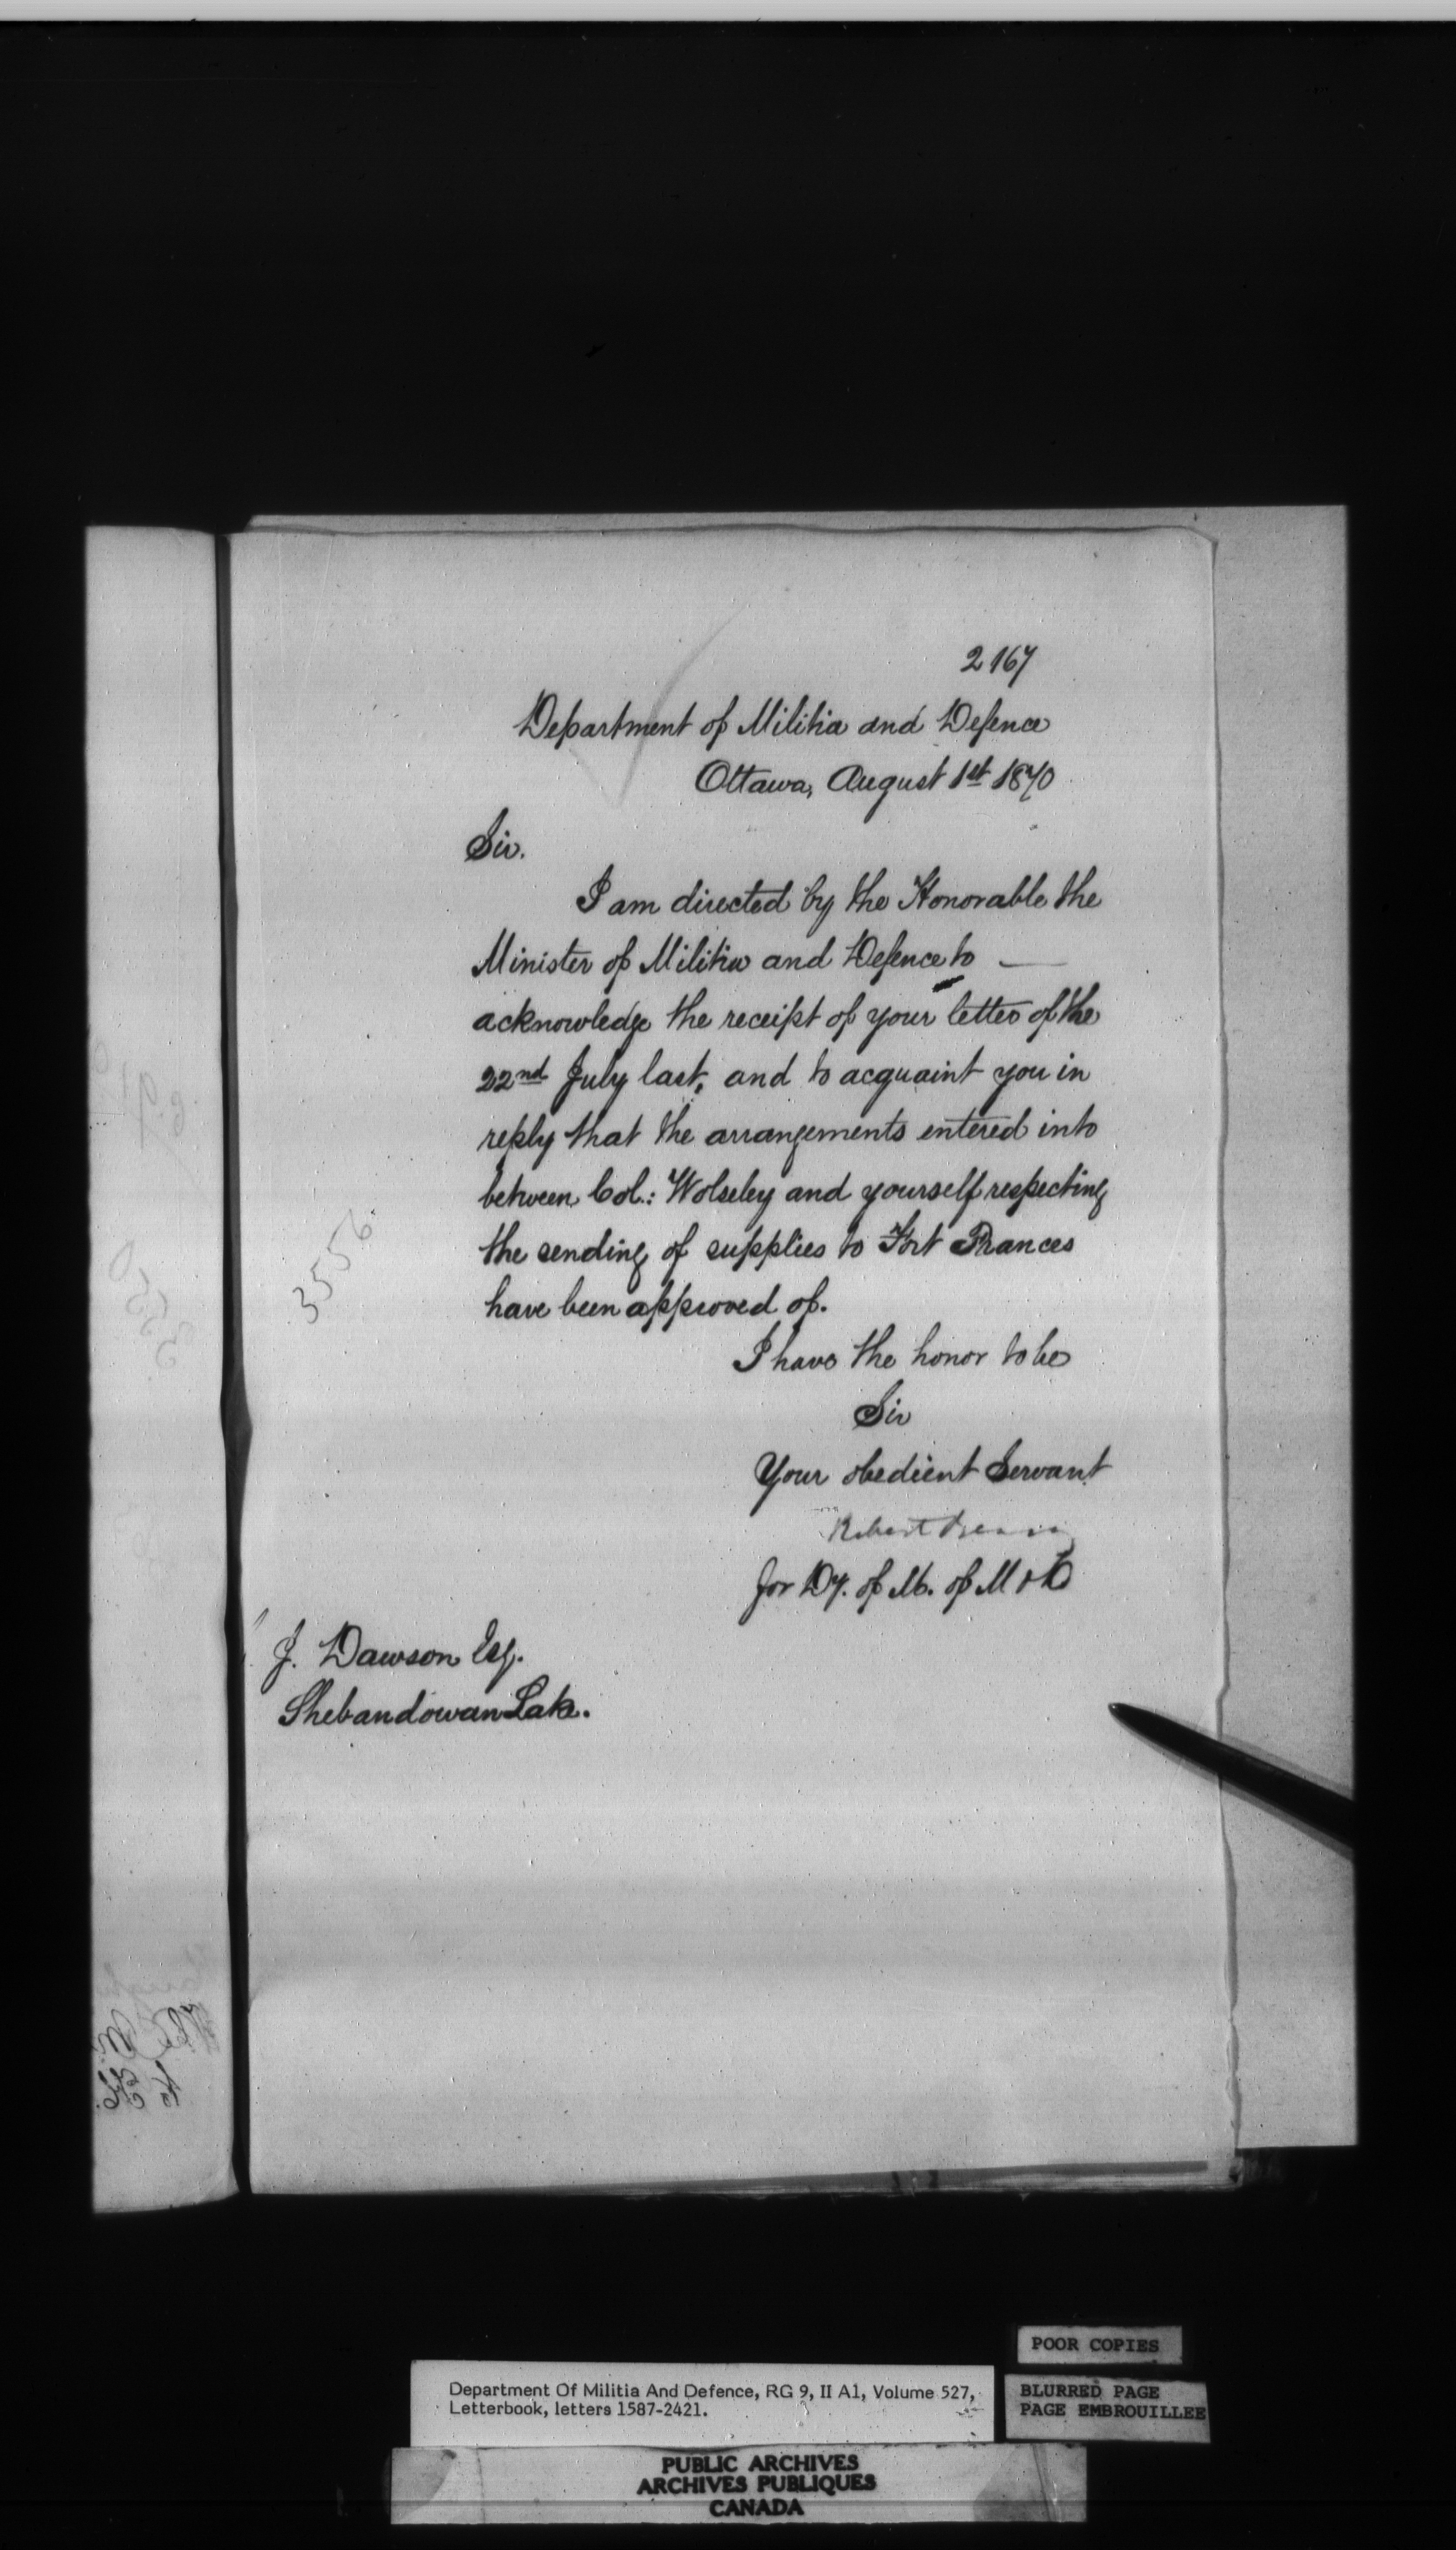 2167
Department of Militia and Defence
Ottawa, August 1st 1870
Sir.
I am directed by the Honorable the
Minister of Militia and Defence to —
acknowledge the receipt of your letter of the
22nd July last, and to acquaint you in
reply that the arrangements entered into
between Col.: Wolseley and yourself respecting
the sending of supplies to Fort Frances
have been approved of.
3556
I have the honor to be
Sir
Your obedient Servant
Robert
for Dy. of M. of M & D
J. Dawson Esq.
Shebandowan Lake.
POOR COPIES
Department Of Militia And Defence, RG 9, II A1, Volume 527,
Letterbook, letters 1587-2421.
BLURRED PAGE
PAGE EMBROUILLEE
PUBLIC ARCHIVES
ARCHIVES PUBLIQUES
CANADA